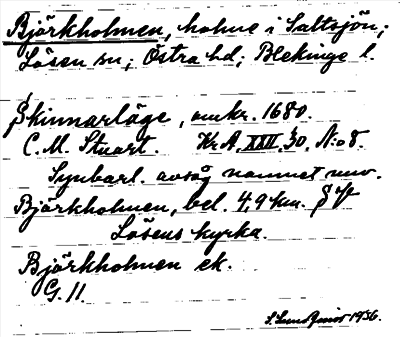 Björkholmen, holme i Saltsjön;
Lösen sn; Östra hd; Blekinge l.
Skinnarläge, omkr. 1680.
C. M. Stuart. Kr A, XXII, 30, N:o 8.
Synbarl. avsåg namnet nuv.
Björkholmen, bel. 4,9 km. S
Lösens kyrka.
Björkholmen ek.
G. 11.
1936.